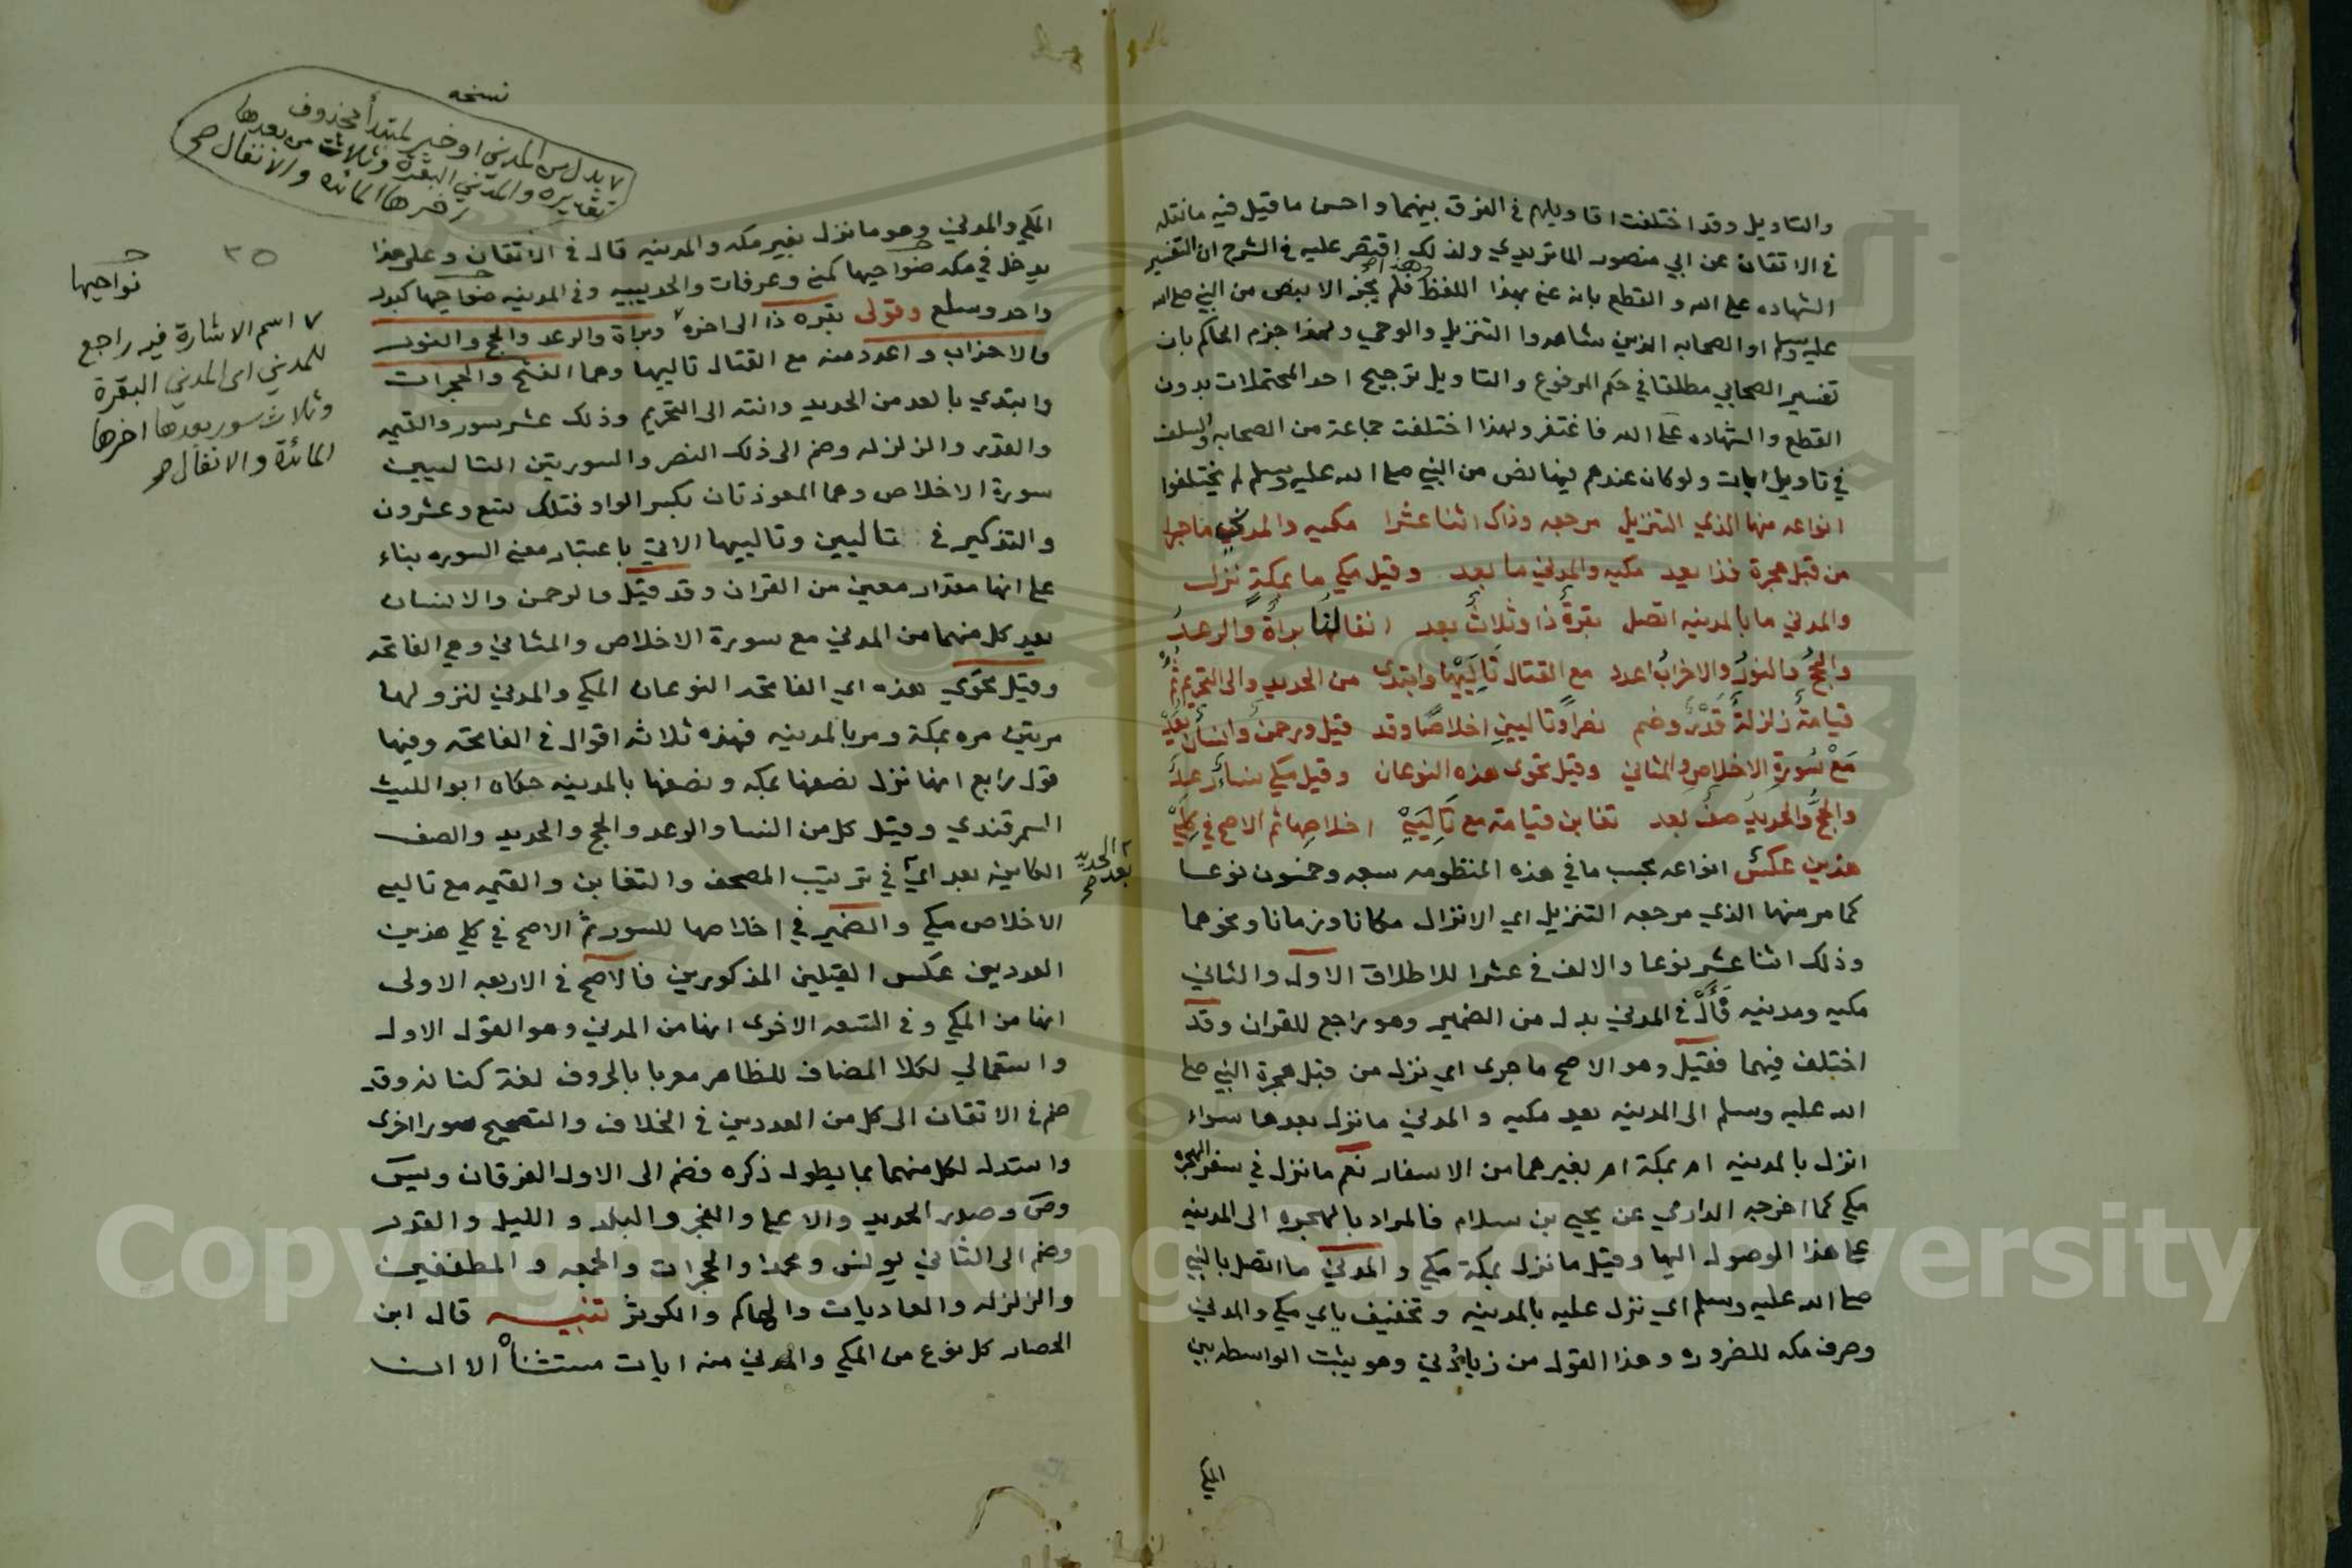 والتاويل وقد اختلفت اقاويلهم في الفرق بينهما واحسن ما قيل فيه ما نقله
في الاتقان عن ابي منصور الماتريدي ولذلك اقتصر عليه في الشرح ان التفسير
الشهاده على الله والقطع بانه عنى بهذا اللفظ هذا فلم يجز الا بنص من النبي صلى الله
عليه وسلم او الصحابه الذين شاهدوا التنزيل والوحي ولهذا جزم الحاكم بان
تفسير الصحابي مطلقا في حكم المرفوع والتاويل ترجيح احد المحتملات بدون
القطع والشهاده على الله فاغتفر ولهذا اختلفت جماعة من الصحابه والسلف
في تاويل ايات ولو كان عندهم فيها نص من النبي صلى الله عليه وسلم لم يختلفوا
انواعه منها الذي التنزيل مرجعه وذاك اثنا عشرا مكيه والمدني ما جرا
من قبل هجرة فذا يعد مكيه والمدني ما بعد وقيل مكي ما بمكة نزل
والمدني ما بالمدينه اتصل بقرة ذا وثلاث بعد انفالها براة والرعد
والحج والنور والاحزاب اعدد مع القتال تالييها وابتدي من الحديد والى التحريم ثم
قيامة زلزلة قدر وضم نصرا وتاليين اخلاصا وقد قيل ورحمن وانسان يعد
مع سورة الاخلاص والمثاني وقيل تحوى هذه النوعان وقيل مكي نساء رعد
والحج والحديد صف بعد تغابن قيامة مع تاليي اخلاصها ثم الاصح في كلي
هذين عكس انواعه بحسب ما في هذه المنظومه سبعه وخمسون نوعا
كما مر منها الذي مرجعه التنزيل اي الانزال مكانا وزمانا ونحوهما
وذلك اثنا عشر نوعا والالف في عشرا للاطلاق الاول والثاني
مكيه ومدنيه فال في المدني بدل من الضمير وهو راجع للقران وقد
اختلف فيهما فقيل وهو الاصح ما جرى اي نزل من قبل هجرة النبي صلى
الله عليه وسلم الى المدينه يعد مكيه والمدني ما نزل بعدها سواء
انزل بالمدينه ام بمكة ام بغيرهما من الاسفار نعم ما نزل في سفر الهجرة
مكي كما اخرجه الدارمي عن يحيى بن سلام فالمراد بالهجره الى المدينه
على هذا الوصول اليها وقيل ما نزل بمكة مكي والمدني ما اتصل بالنبي
صلى الله عليه وسلم اي نزل عليه بالمدينه وتخفيف ياي مكي والمدني
وصرف مكه للضروره وهذا القول من زيادتي وهو يثبت الواسطه بين
المكي
نسخه
بدل من المدني او خبر لمبتدأ محذوف
تقديره والمدني البقرة وثلاث من بعدها
اخرها المائده والانفال صح
٣٥
نواحيها
اسم الاشارة فيه راجع
للمدني اى المدني البقرة
وثلاث سور بعدها اخرها
المائدة والانفال صح
المكي والمدني وهو ما نزل بغير مكه والمدينه قال في الاتقان وعلى هذا
يدخل في مكه ضواحيها كمنى وعرفات والحديبيه وفي المدينه ضواحيها كبدر
واحد وسلع وقولى بقره ذا الى اخره وبراة والرعد والحج والنور
والاحزاب واعدد منه مع القتال تالييها وهما الفتح والحجرات
وابتدي بالعد من الحديد وانته الى التحريم وذلك عشر سور والقيمه
والقدر والزلزله وضم الى ذلك النصر والسورتين التاليين
سورة الاخلاص وهما المعوذتان بكسر الواو فتلك تسع وعشرون
والتذكير في تاليين وتالييها الاتي باعتبار معنى السوره بناء
على انها مقدار معين من القران وقد قيل والرحمن والانسان
يعد كل منهما من المدني مع سورة الاخلاص والمثاني وهي الفاتحه
وقيل تحوي هذه اي الفاتحه النوعان المكي والمدني لنزولها
مرتين مره بمكة ومره بالمدينه فهذه ثلاثه اقوال في الفاتحه وفيها
قول رابع انها نزل نصفها بمكه ونصفها بالمدينه حكاه ابو الليث
السمرقندي وقيل كل من النسا والرعد والحج والحديد والصف
بعد الحديد صح
الكاينه بعد اي في ترتيب المصحف والتغابن والقيمه مع تاليي
الاخلاص مكي والضمير في اخلاصها للسور ثم الاصح في كلي هذين
العددين عكس القيلين المذكورين فالاصح في الاربعه الاولى
انها من المكي وفي التسعه الاخرى انها من المدني وهو القول الاول
واستعمالي لكلا المضاف للظاهر معربا بالحروف لغة كنانه وقد
ضم في الاتقان الى كل من العددين في الخلاف والتصحيح سورا اخرى
واستدل لكل منهما بما يطول ذكره فضم الى الاول الفرقان ويس
وص وصدر الحديد والاعلى والفجر والبلد والليل والقدر
وضم الى الثاني يونس ومحمدا والحجرات والجمعه والمطففين
والزلزله والعاديات والهاكم والكوثر تنبيه قال ابن
الحصار كل نوع من المكي والمدني منه ايات مستثناة الا ان
Copyright © King Saud University